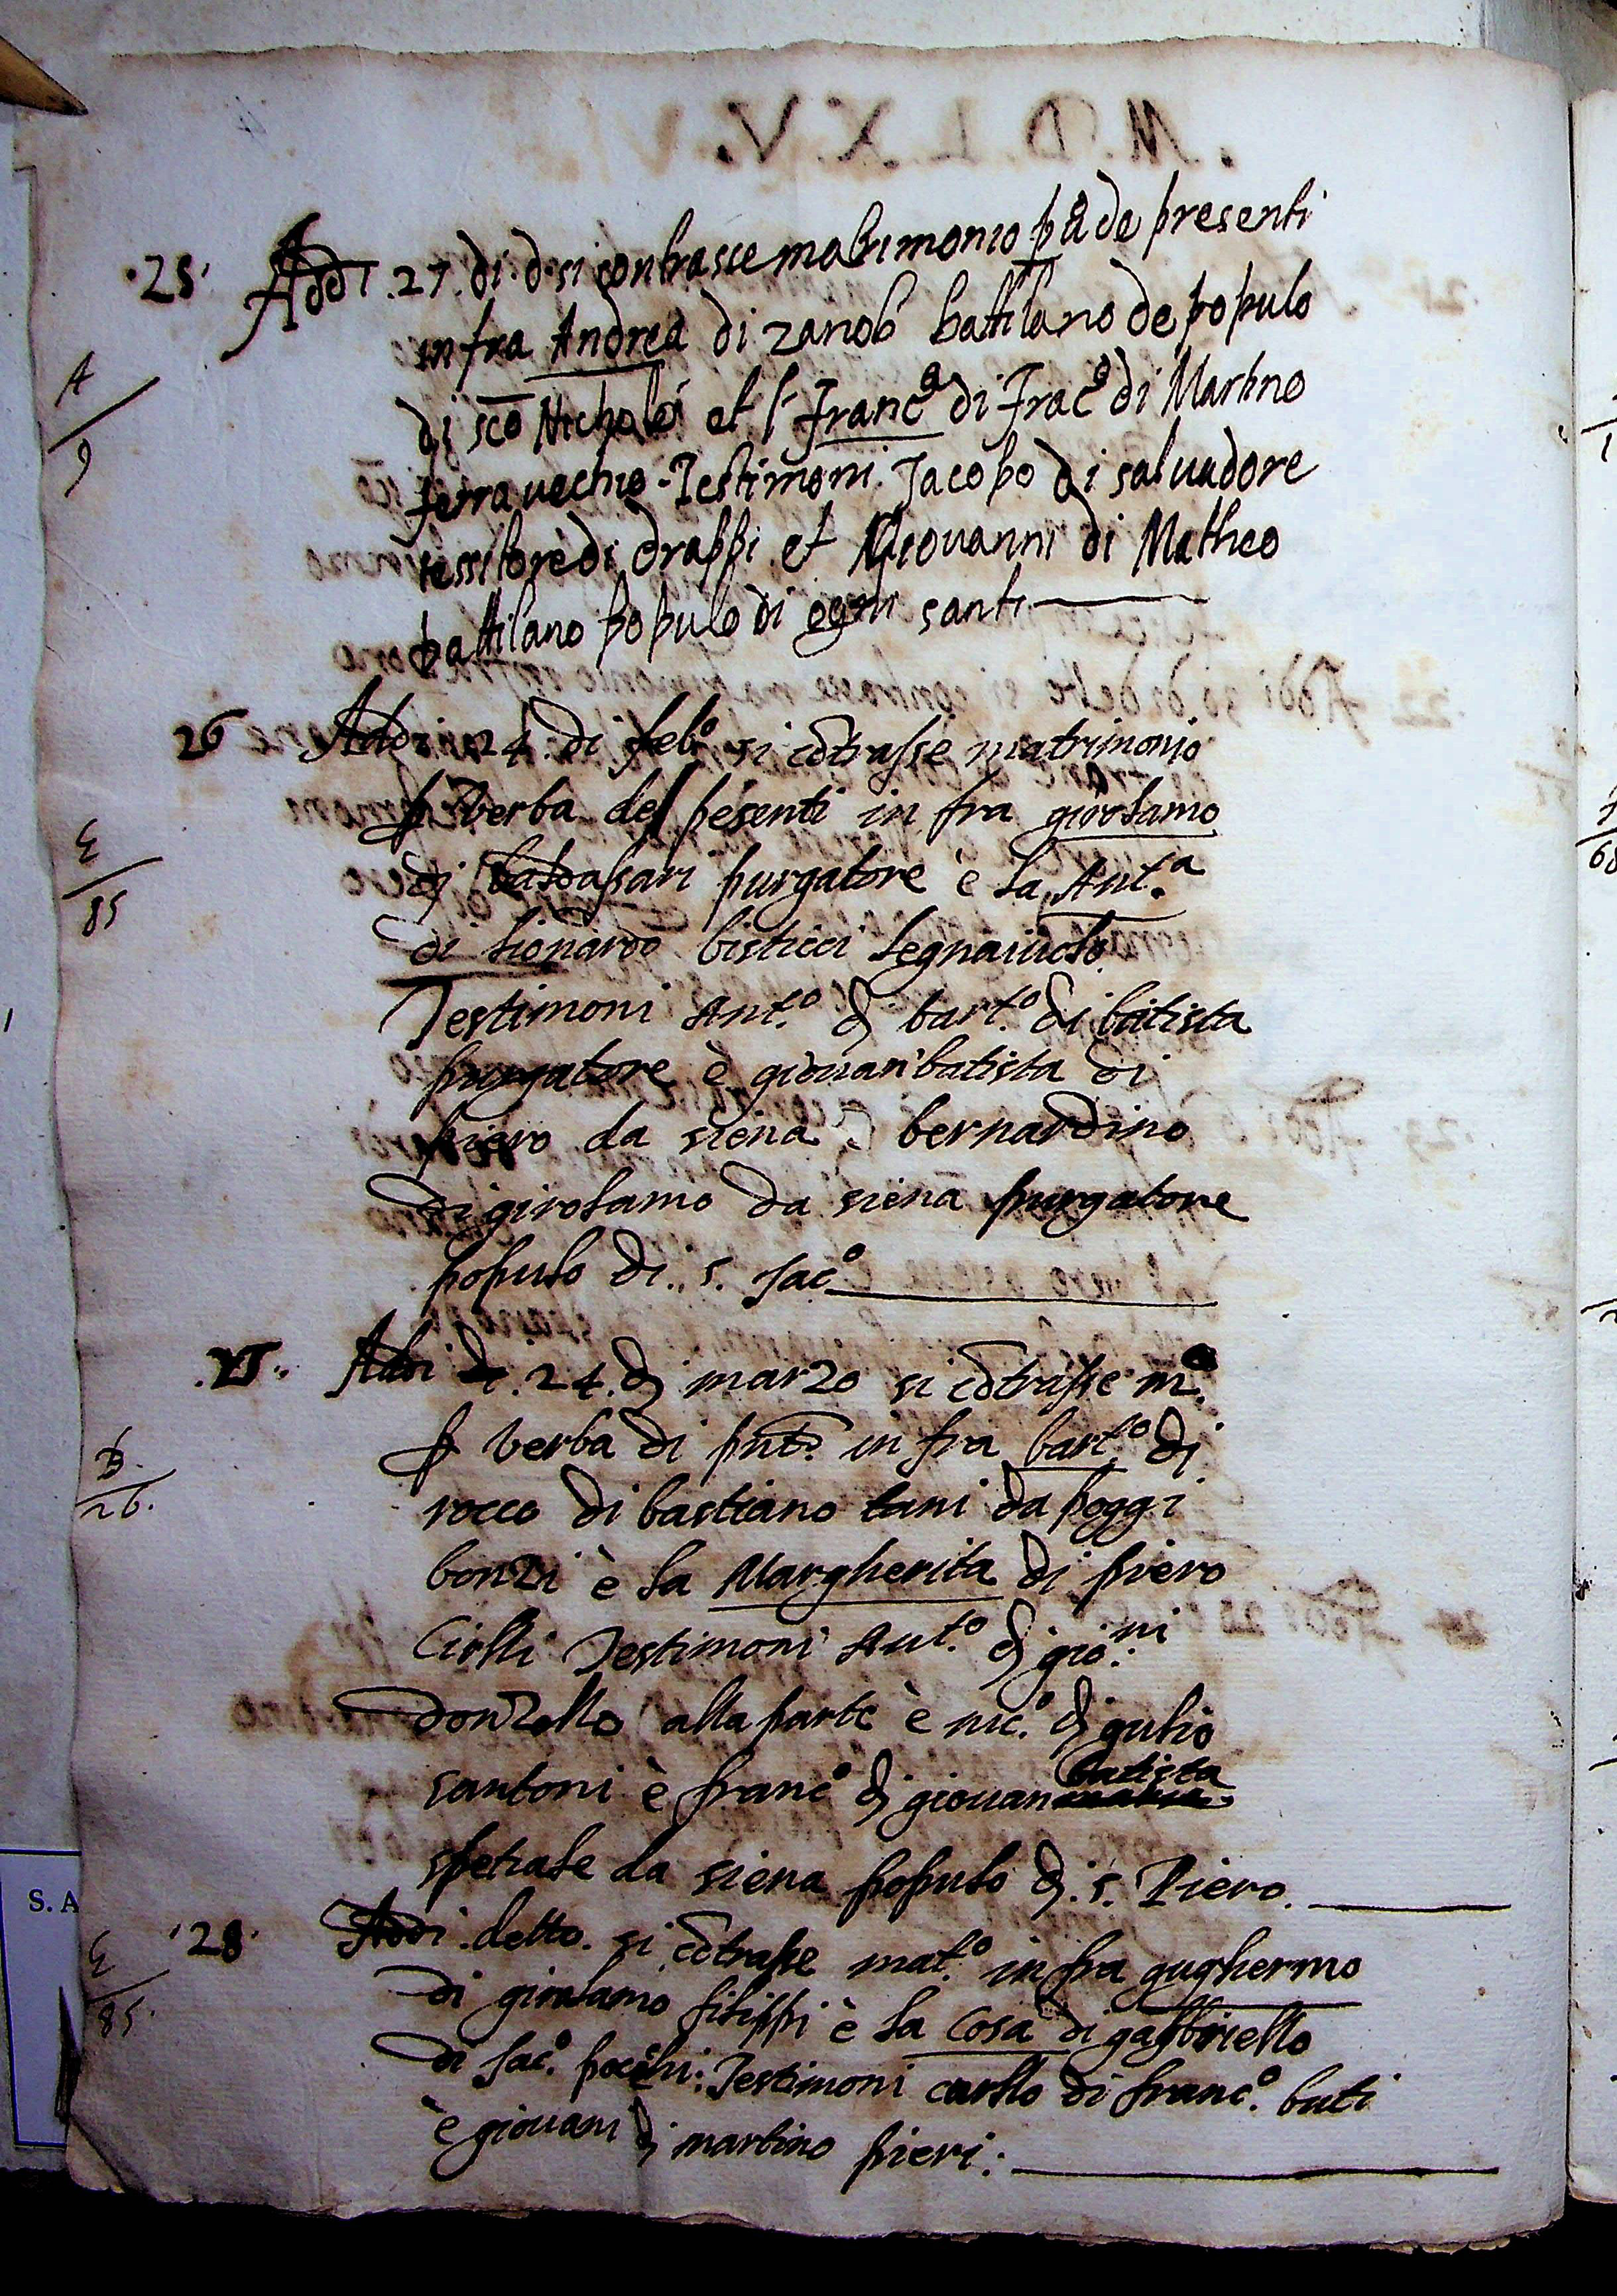 .M.D.L.X.V.
.25. Addi .27. di d. si contrasse matrimonio pa de presenti
infra Andrea di zanobi battilano de populo
A
9
di sco Nicholo et l franca di Fraco di Martino
ferravechio - Testimoni. Jacopo di salvadore
tessitore di drappi et Giovanni di Matheo
battilano populo di ogni santi
26 Addi 24. di febo si cōtrasse matrimonio
p verba del pesenti in fra girolamo
G
85
di baldassari purgatore è la Ant.a
di lionardo bisticci legnaiuolo.
Testimoni Ant.o di bart.o di batista
purgatore è giovanbatista di
piero da siena è bernardino
di girolamo da siena purgatore
populo di . s. Jaco
.27. Addi di .24. di marzo si cōtrasse m.o
p verba di pnti. in fra bart.o di
B.
26.
rocco di bastiano tani da poggi
bonzi è la Margherita di piero
Cirlli Testimoni Ant.o di gio.ni
donzello alla parte è nic.o di gulio
santoni è franco di giovan batista
spetiale da siena populo di . s. Piero.
.28. Addi . detto . si cōtrasse mat.o in fra gughermo
G
85.
di girolamo filippi è la Cosa di gabbriello
di Jac.o pocchi: Testimoni carllo di franc.o buti
è giovani di martino pieri:
S. A